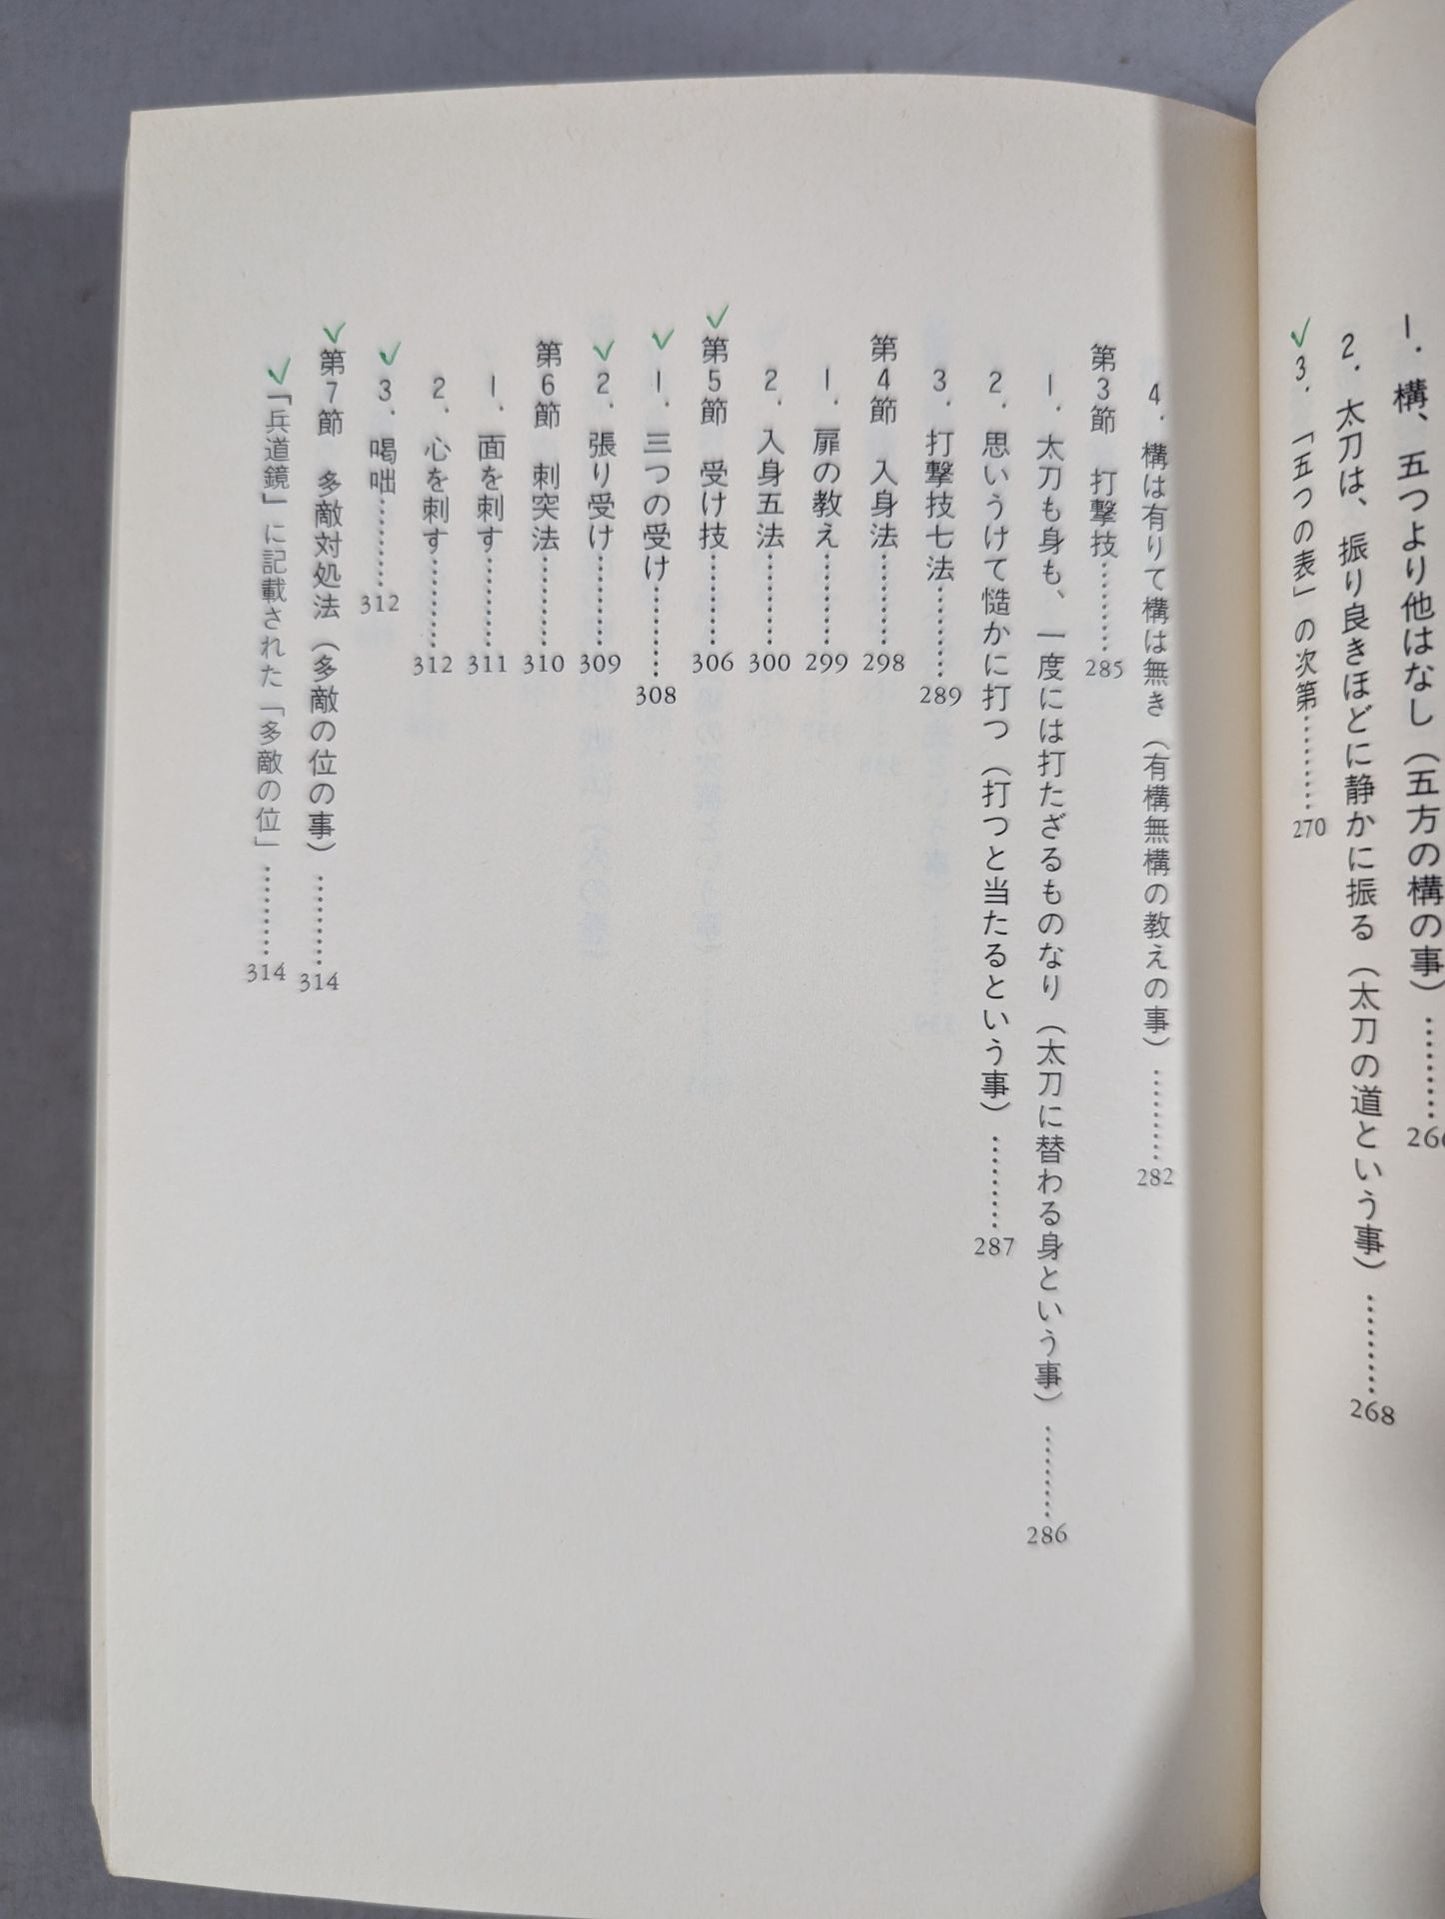 1. 構、五つより他はなし（五方の構の事）………266
2. 太刀は、振り良きほどに静かに振る（太刀の道という事）………268
3. 「五つの表」の次第………270
4. 構は有りて構は無き（有構無構の教えの事）………282
第3節 打撃技………285
1. 太刀も身も、一度には打たざるものなり（太刀に替わる身という事）………286
2. 思いうけて慥かに打つ（打つと当たるという事）………287
3. 打撃技七法………289
第4節 入身法………298
1. 扉の教え………299
2. 入身五法………300
第5節 受け技………306
1. 三つの受け………308
2. 張り受け………309
第6節 刺突法………310
1. 面を刺す………311
2. 心を刺す………312
3. 喝咄………312
第7節 多敵対処法（多敵の位の事）………314
「兵道鏡」に記載された「多敵の位」………314